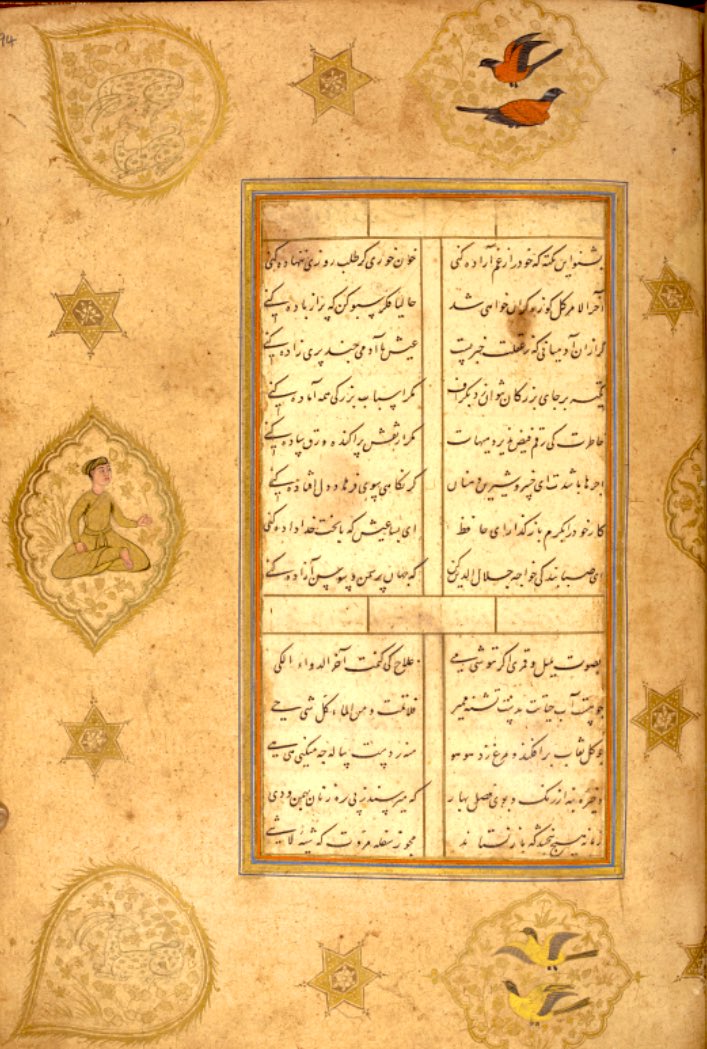 94
بشنو این نکته که خود را ز غم آزاده کنی خون خوری گر طلب روزی ننهاده کنی
آخر الامر کل کوزه کران خواهی شد حالیا فکر سبو کن که پر از باده کنی
گر ازان آدمیانی که خبریست عیش با آدمی چند پری زاده کنی
تکیه بر جای بزرکان نتوان زد بکزاف مکر اسباب بزرکی همه آماده کنی
خاطرت کی رقم فیض پذیرد هیهات مکر از نقش پراکنده ورق ساده کنی
اجرها باشدت ای خسرو شیرین دهنان کر نکاهی سوی فرهاد دل افتاده کنی
کار خود کر بکرم باز کذاری ای حافظ ای بسا عیش که با بخت خداداده کنی
ای صبا بندکی خواجه جلال الدین کن که جهان پر سمن و سوسن آزاده کنی
بصوت بلبل و قمری اکر ننوشی می علاج کی کنمت آخر الدواء الکی
چو هست آب حیاتت بدست تشنه ممیر فلا تمت و من الماء کل شی حی
چو کل نقاب برافکند و مرغ زد هو هو منه ز دست پیاله چه میکنی هی هی
ذخیره بنه از رنک و بوی فصل بهار که میرسند ز پی رهزنان بهمن و دی
زمانه هیچ نبخشد که باز نستاند مجو ز سفله مروت که شیئه لاشی